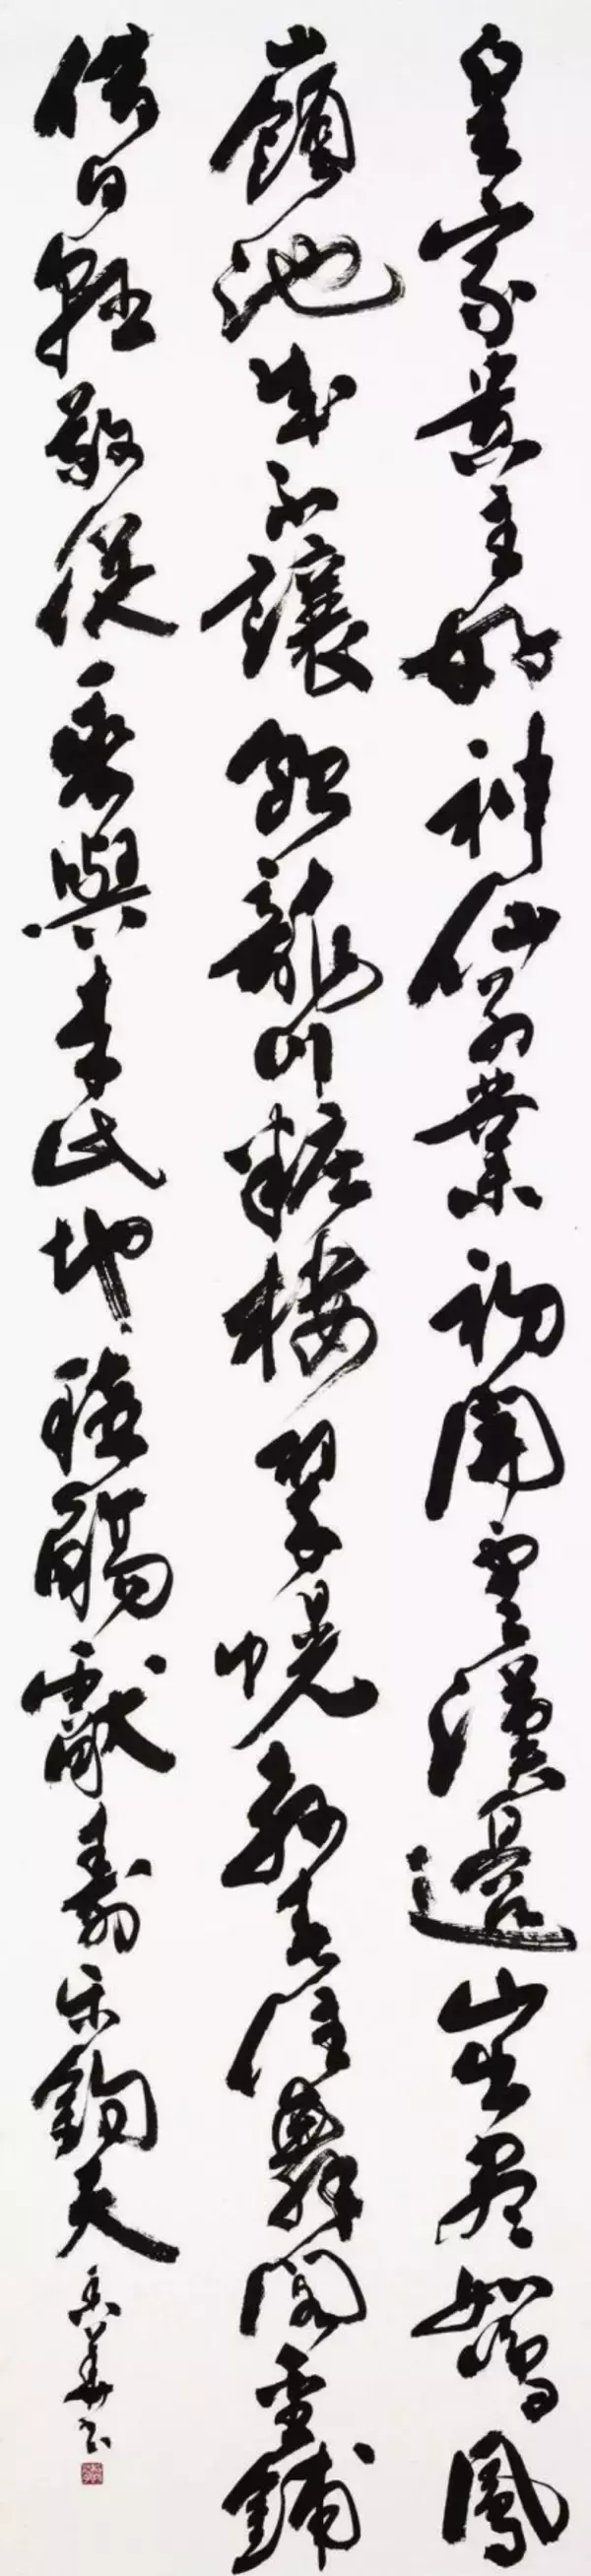 皇家貴主好神仙別業初開雲漢邊山出盡如鳴鳳
嶺池成不讓飲龍川粧樓翠幌教春住舞閣金鋪
借日懸敬從乘輿來此地稱觴獻壽樂鈞天
華書